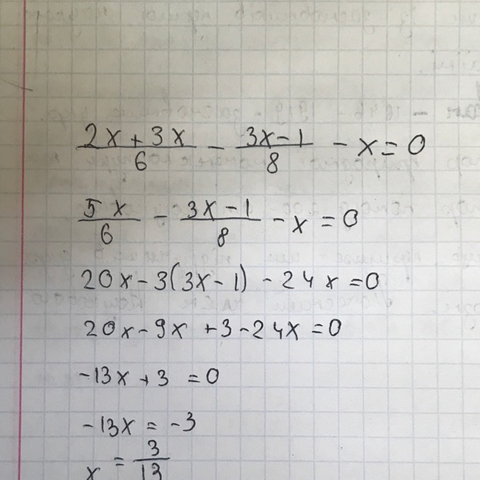 (2x + 3x)/6 − (3x − 1)/8 − x = 0
5x/6 − (3x − 1)/8 − x = 0
20x − 3(3x − 1) − 24x = 0
20x − 9x + 3 − 24x = 0
−13x + 3 = 0
−13x = −3
x = 3/13